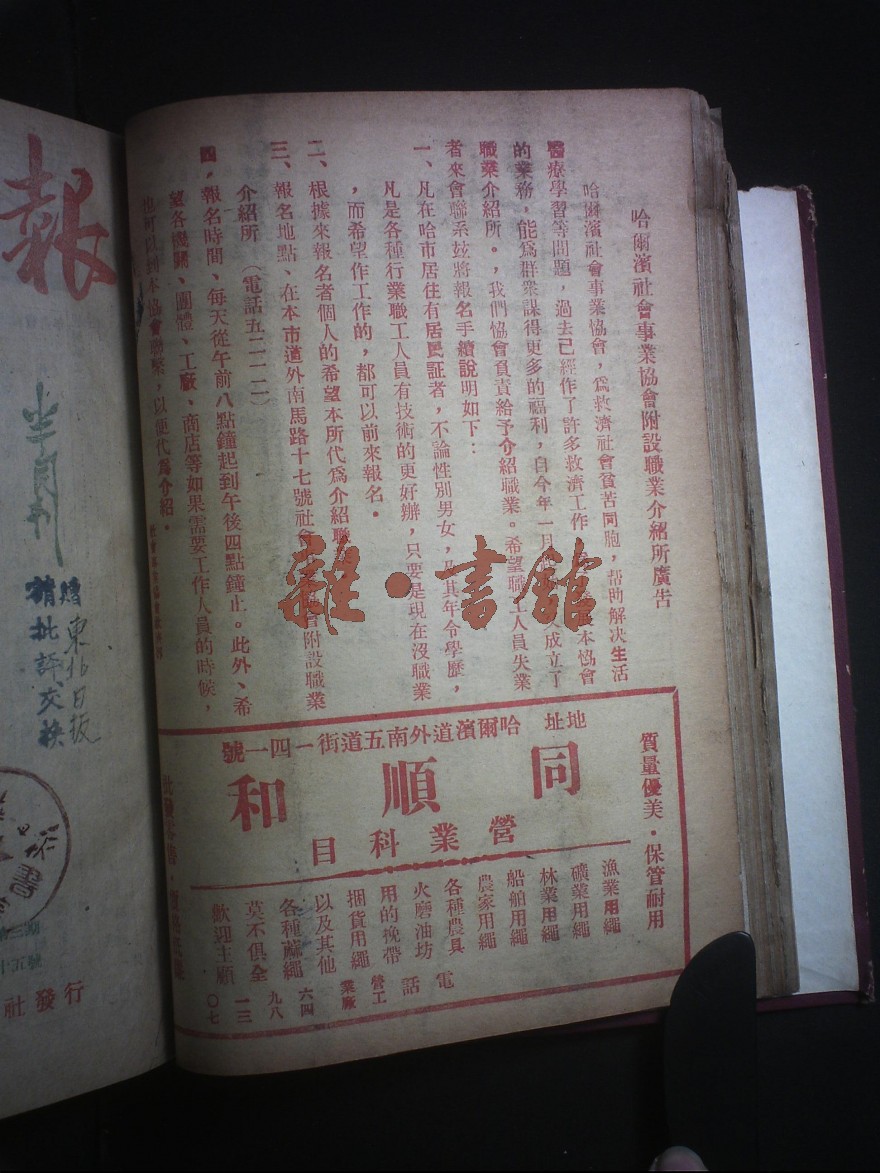 哈爾濱社會事業協會附設職業介紹所廣告
哈爾濱社會事業協會,為救濟社會貧苦同胞,帮助解决生活
醫療學習等問題,過去已經作了許多救濟工作 本協會
的業務,能為群衆謀得更多的福利,自今年一月 成立了
職業介紹所。,我們協會負責給予介紹職業。希望職工人員失業
者來會聯系玆將報名手續說明如下:
一、凡在哈市居住有居民証者,不論性別男女, 其年令學歷,
凡是各種行業職工人員有技術的更好辦,只要是現在沒職業
,而希望作工作的,都可以前來報名。
二、根據來報名者個人的希望本所代為介紹職
三、報名地點、在本市道外南馬路十七號社會 附設職業
介紹所 (電話五二二二)
四,報名時間、每天從午前八點鐘起到午後四點鐘止。此外、希
望各機關、團體、工廠、商店等如果需要工作人員的時候,
也可以到本協會聯繫,以便代為介紹。
質量優美·保管耐用
地址 哈爾濱道外南五道街一四一號
同順和
營業科目
漁業用繩
礦業用繩
林業用繩
船舶用繩
農家用繩
各種農具
火磨油坊
用的挽帶
捆貨用繩
以及其他
各種蔴繩
莫不俱全
歡迎主顧
電話
營工
業廠
六四
九八
一三
〇七
報
半月刊
贈東北日报
請批評交換
社發行
雜·書館